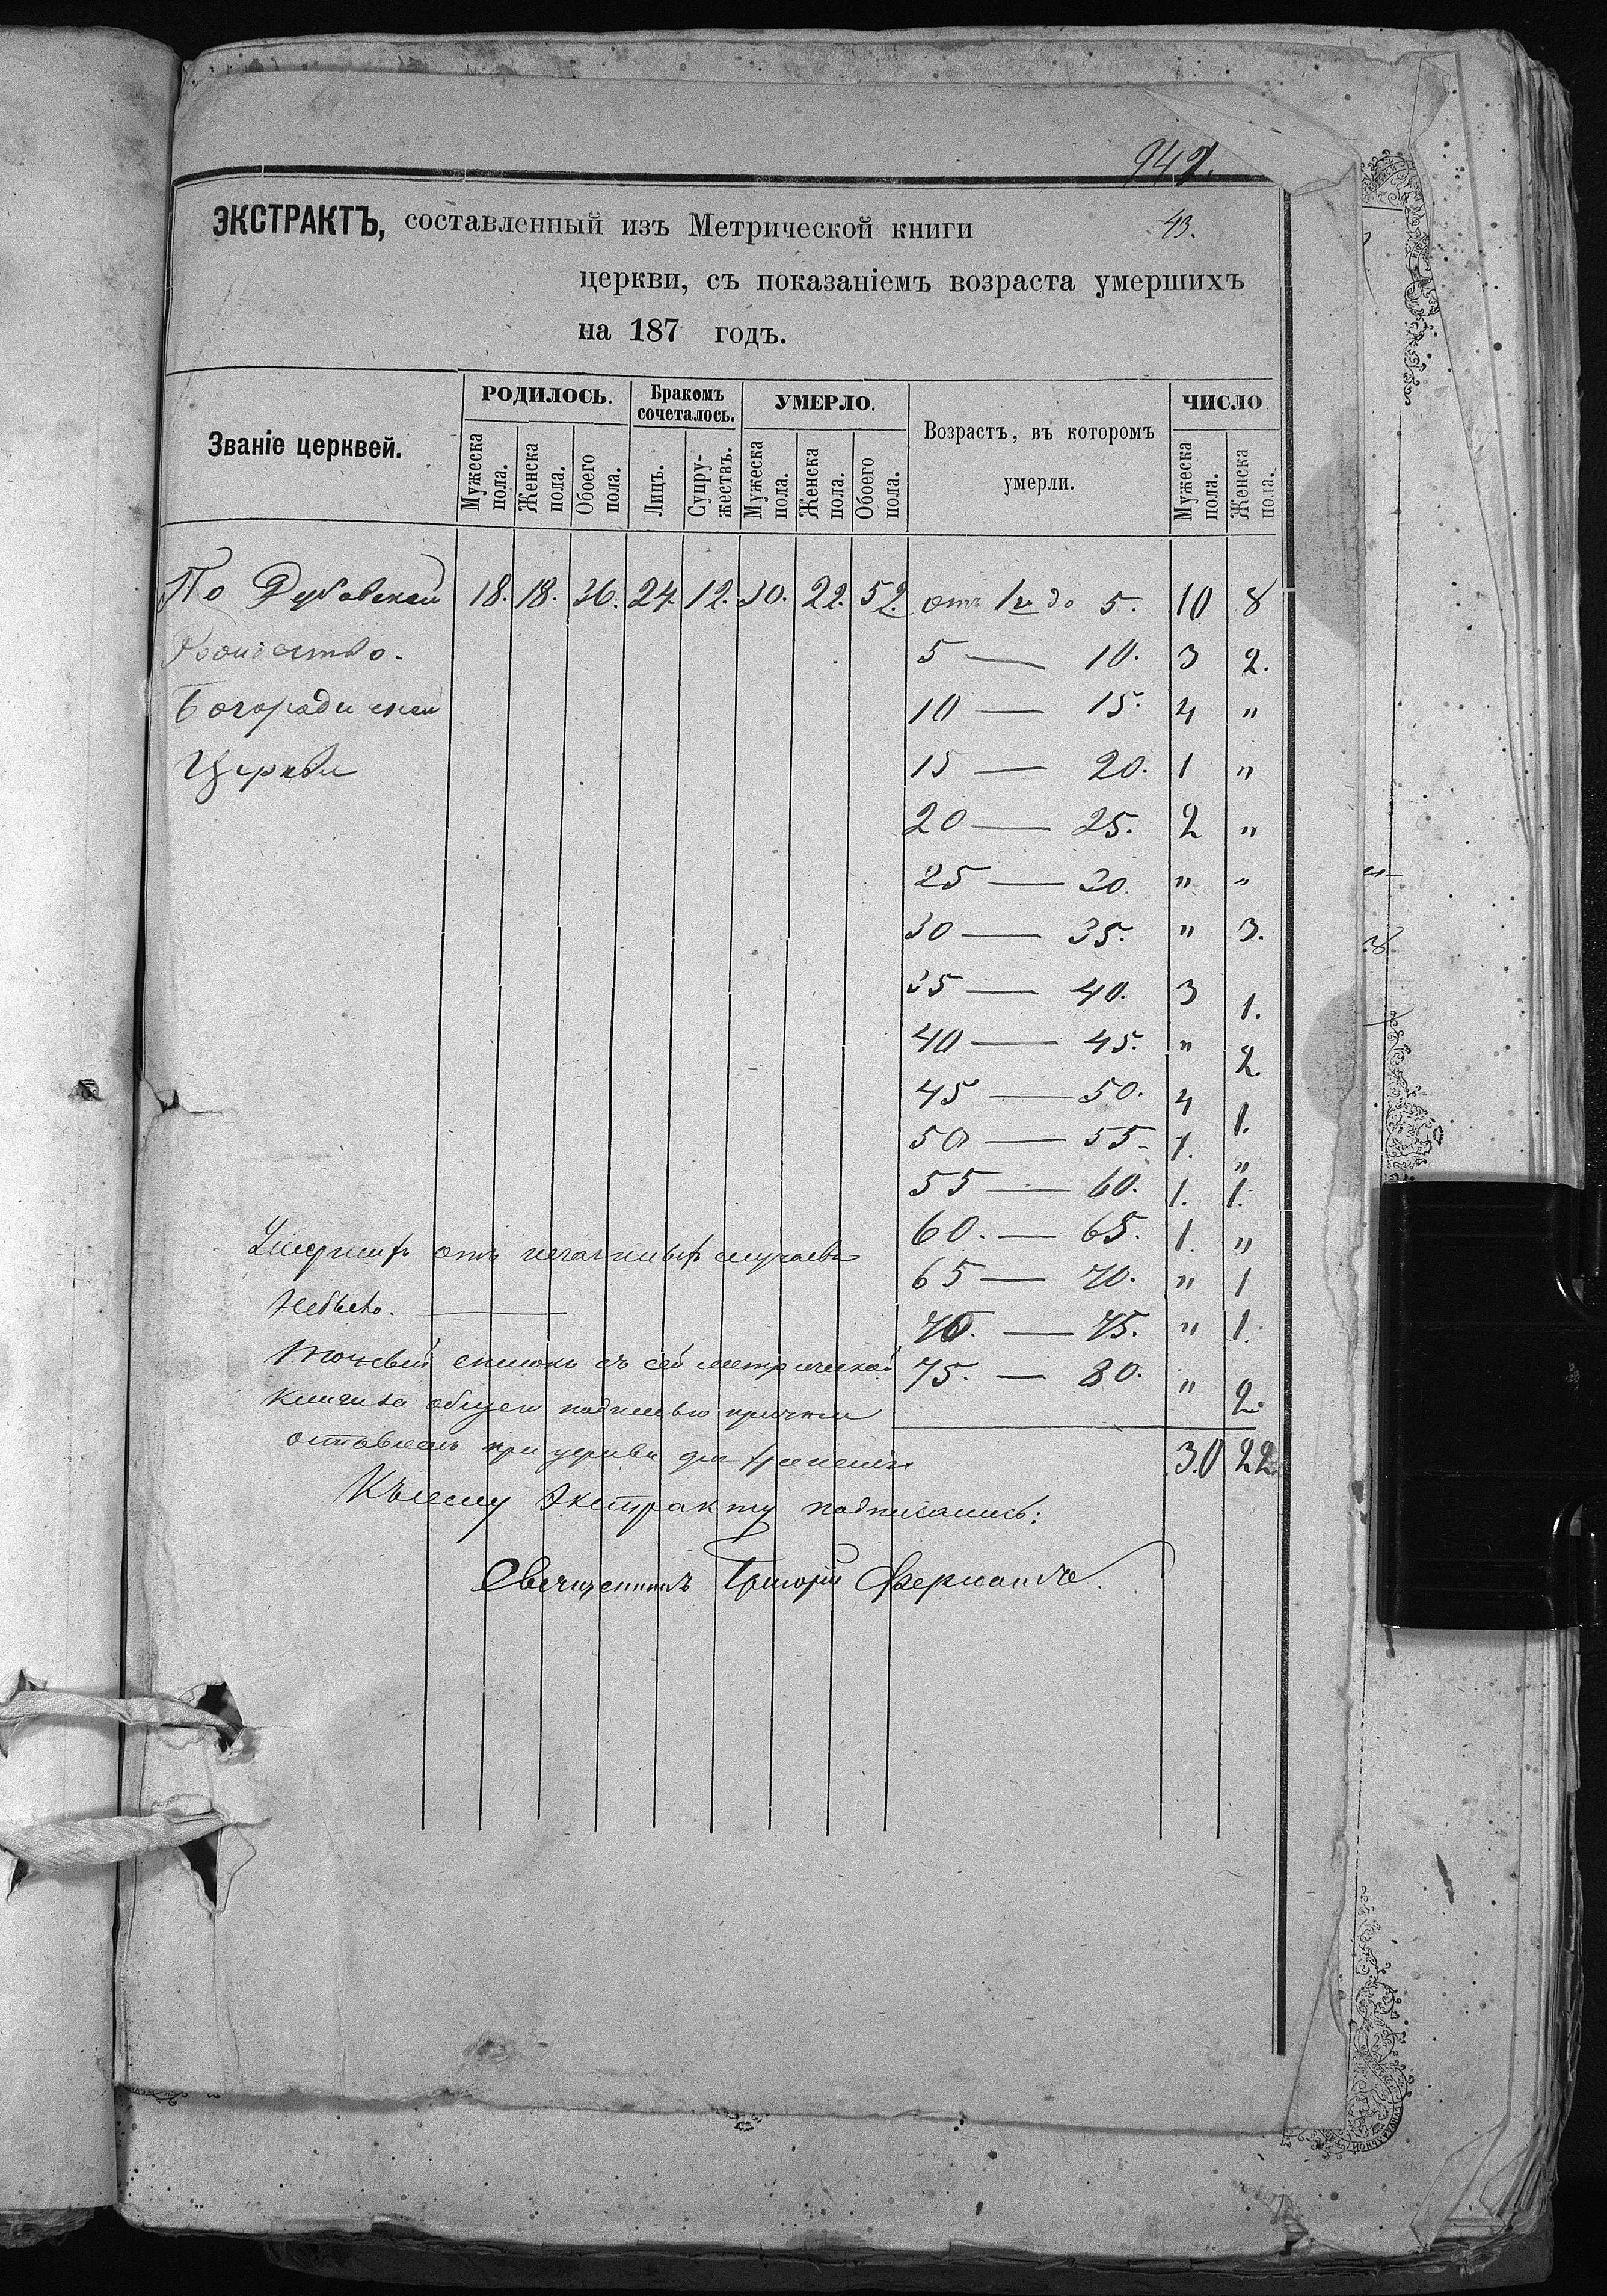 942.
ЭКСТРАКТЪ, составленный изъ Метрической книги
43.
церкви, съ показаніемъ возраста умершихъ
на 187 годъ.
Званіе церквей.
РОДИЛОСЬ.
Мужеска пола.
Женска пола.
Обоего пола.
Бракомъ сочеталось.
Лицъ.
Супру-жествъ.
УМЕРЛО.
Мужеска пола.
Женска пола.
Обоего пола.
Возрастъ, въ которомъ
умерли.
ЧИСЛО
Мужеска пола.
Женска пола.
По Дубовской 18. 18. 36. 24. 12. 30. 22. 52. отъ 1 г. до 5. 10 8
Рождество- 5 — 10. 3 2.
Богородичной 10 — 15. 4 "
Церкви 15 — 20. 1 "
20 — 25. 2 "
25 — 30. " "
30 — 35. " 3.
35 — 40. 3 1.
40 — 45. " 2.
45 — 50. 4 1.
50 — 55- 1. "
55 — 60. 1. 1.
60. — 65. 1. "
Умершихъ отъ нечаянныхъ случаевъ
65 — 70. " 1
небыло. —
70. — 75. " 1.
Точный списокъ съ сей метрической
75. — 80. " 2.
книги за общею подписью причта
оставленъ при церкви для храненія
30 22
Къ сему Экстракту подписались:
Священникъ Григорій